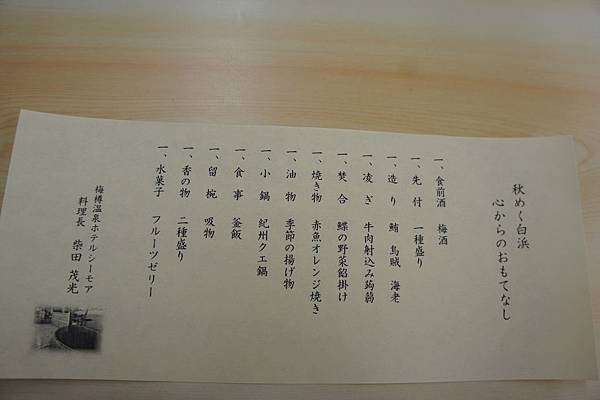 秋めく白浜
心からのおもてなし
一、食前酒　梅酒
一、先　付　一種盛り
一、造　り　鮪　烏賊　海老
一、凌　ぎ　牛肉射込み蒟蒻
一、焚　合　鰈の野菜餡掛け
一、焼き物　赤魚オレンジ焼き
一、油　物　季節の揚げ物
一、小　鍋　紀州クエ鍋
一、食　事　釜飯
一、留　椀　吸物
一、香の物　二種盛り
一、水菓子　フルーツゼリー
梅樽温泉ホテルシーモア
料理長　柴田　茂光